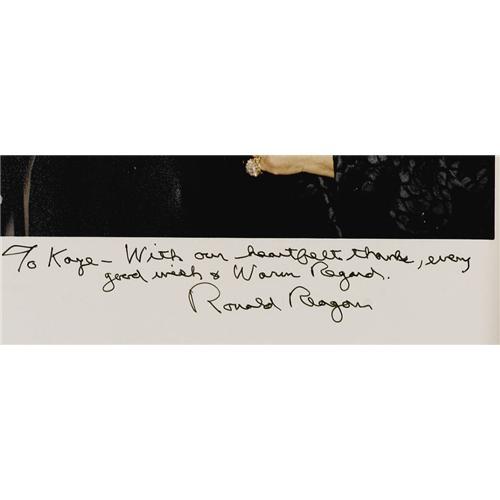 To Kaye – With our heartfelt thanks, every
good wish & Warm Regard.
Ronald Reagan